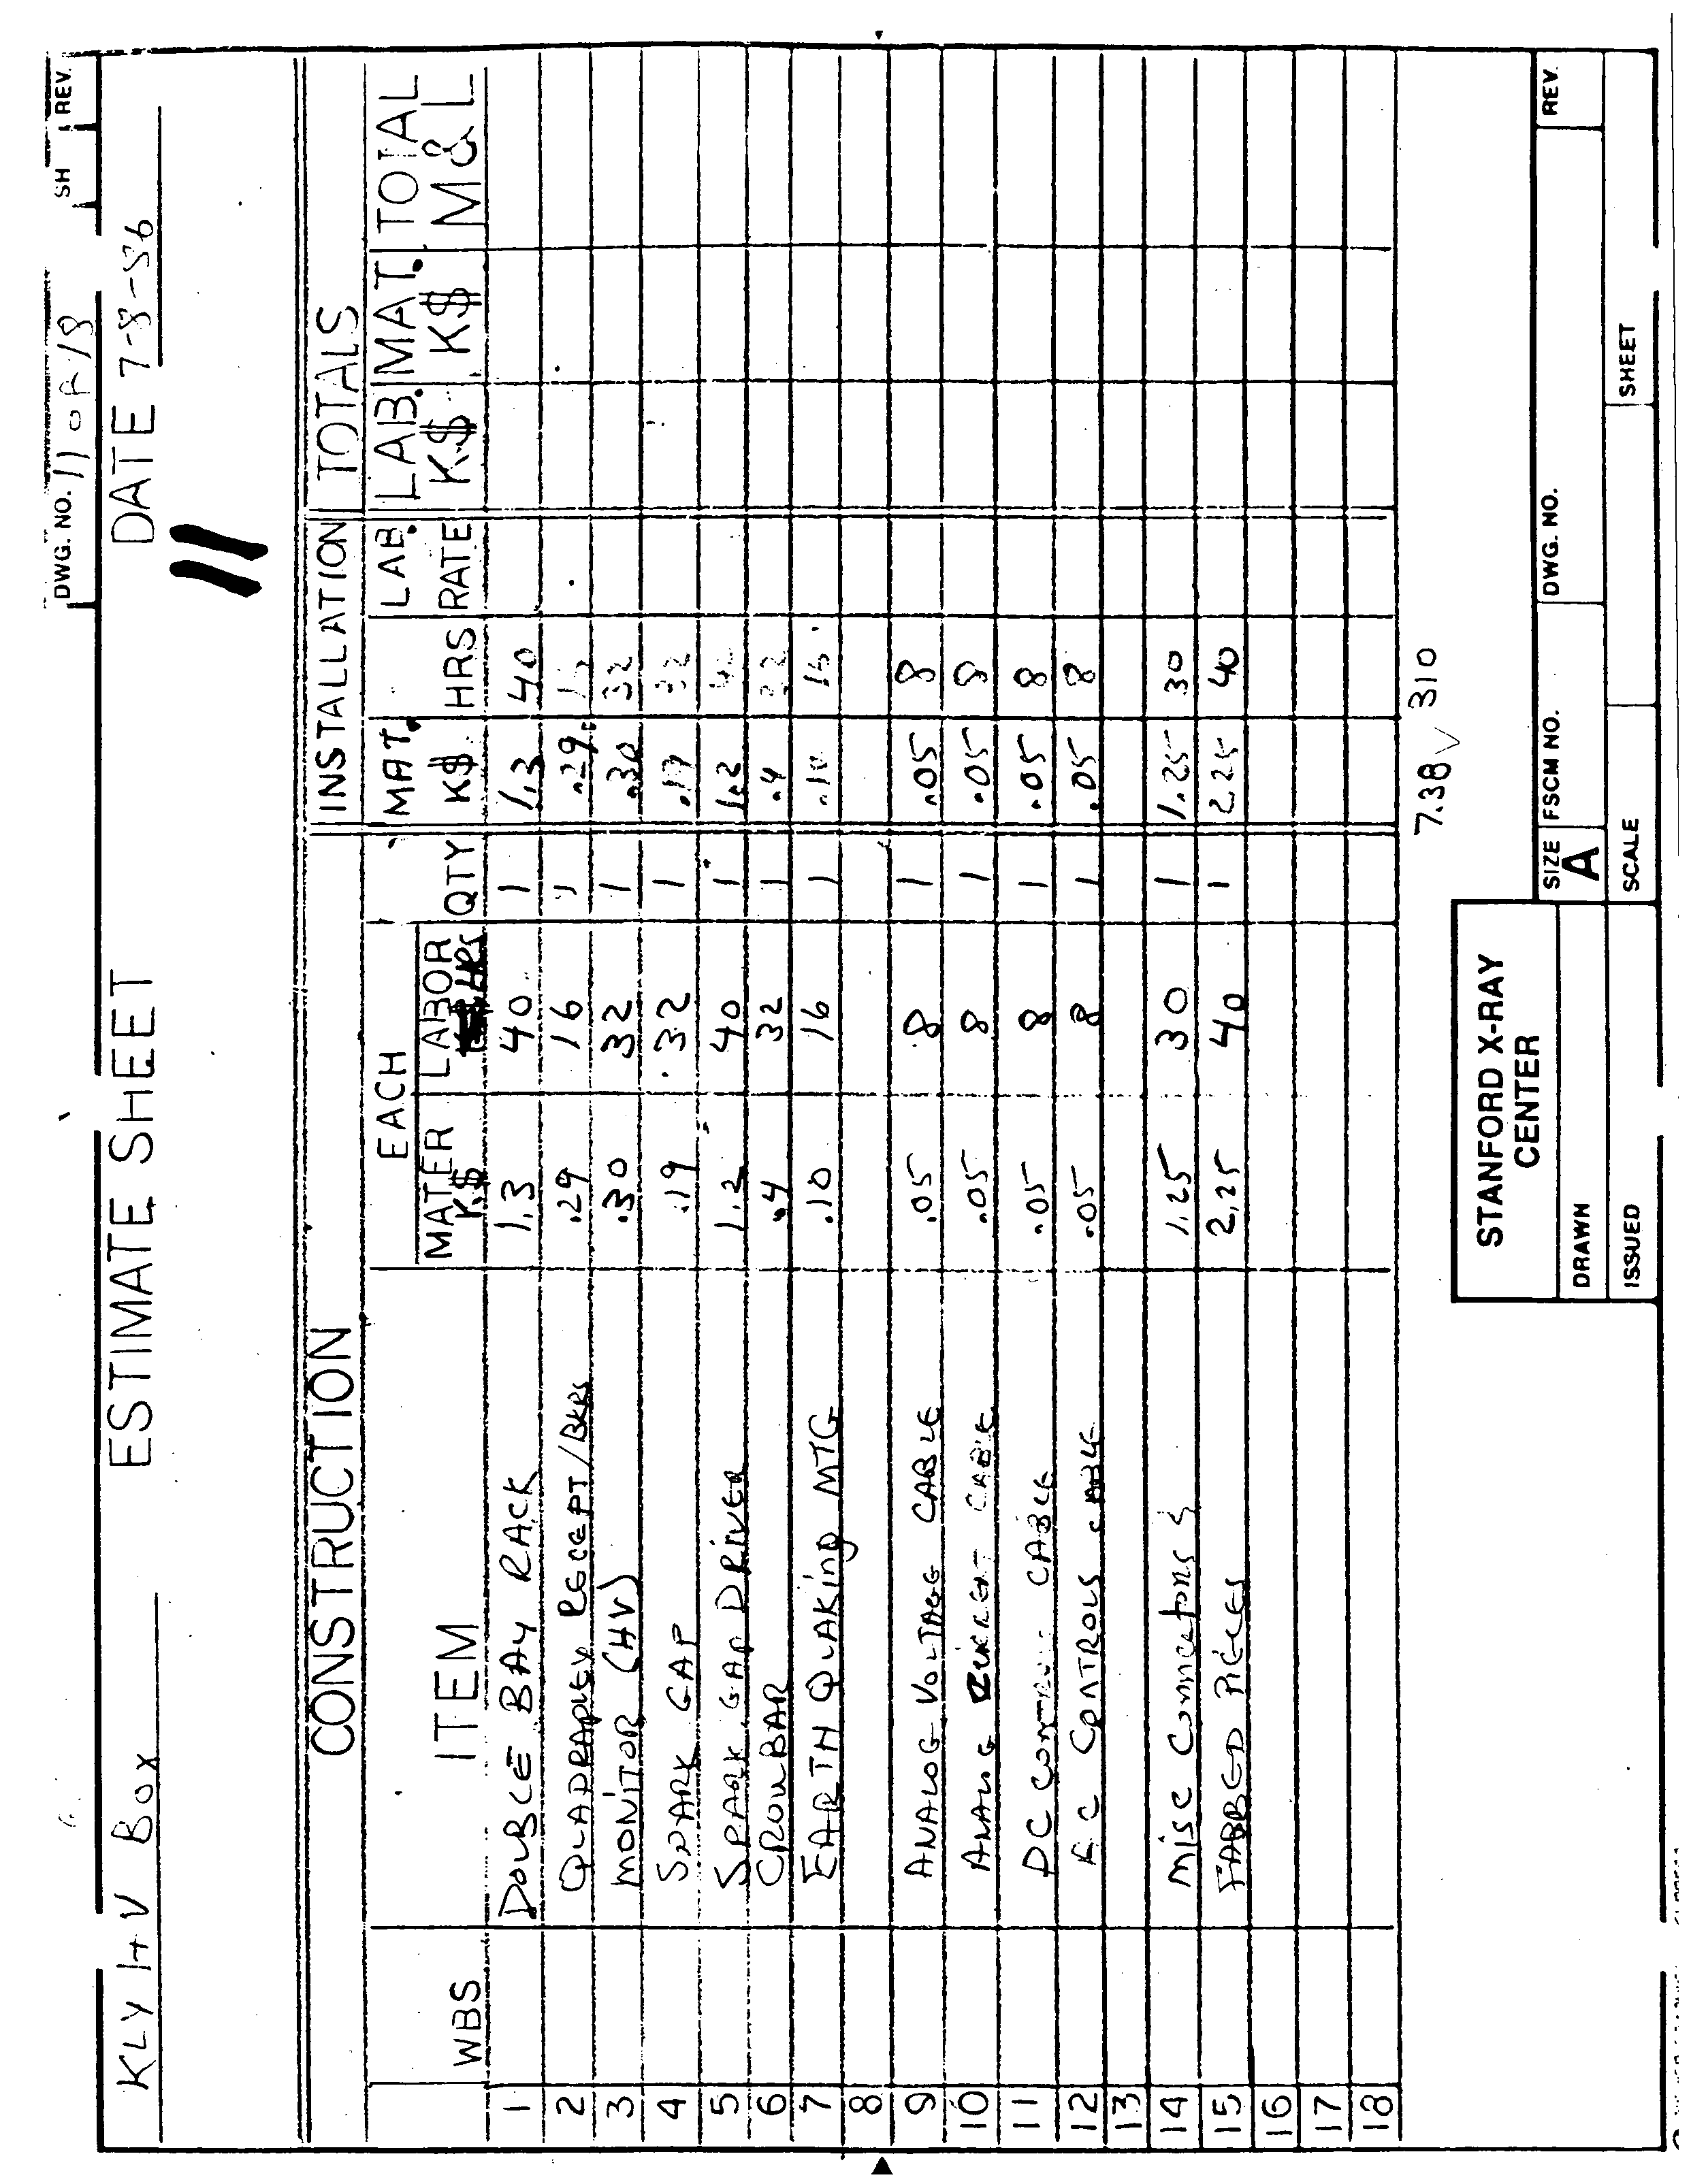 DWG. NO. 11 OF 18 SH REV.
KLY HV BOX ESTIMATE SHEET DATE 7-8-86
11
CONSTRUCTION INSTALLATION TOTALS
EACH
WBS ITEM MATER K$ LABOR HRS QTY MAT. K$ HRS LAB. RATE LAB. K$ MAT. K$ TOTAL M&L
1 DOUBLE BAY RACK 1.3 40 1 1.3 40
2 QUADRAPLEX RECEPT/BKRS .29 16 1 .29 16
3 MONITOR (HV) .30 32 1 .30 32
4 SPARK GAP .19 32 1 .19 32
5 SPARK GAP DRIVER 1.2 40 1 1.2 40
6 CROWBAR .4 32 1 .4 32
7 EARTH QUAKING MTG .10 16 1 .10 16
8
9 ANALOG VOLTAGE CABLE .05 8 1 .05 8
10 ANALOG CURRENT CABLE .05 8 1 .05 8
11 DC CONTROL CABLE .05 8 1 .05 8
12 A.C CONTROLS CABLE .05 8 1 .05 8
13
14 MISC Connectors & 1.25 30 1 1.25 30
15 FABBED PIECES 2.25 40 1 2.25 40
16
17
18
7.38 310
STANFORD X-RAY
CENTER
SIZE A FSCM NO. DWG. NO. REV.
DRAWN
ISSUED SCALE SHEET